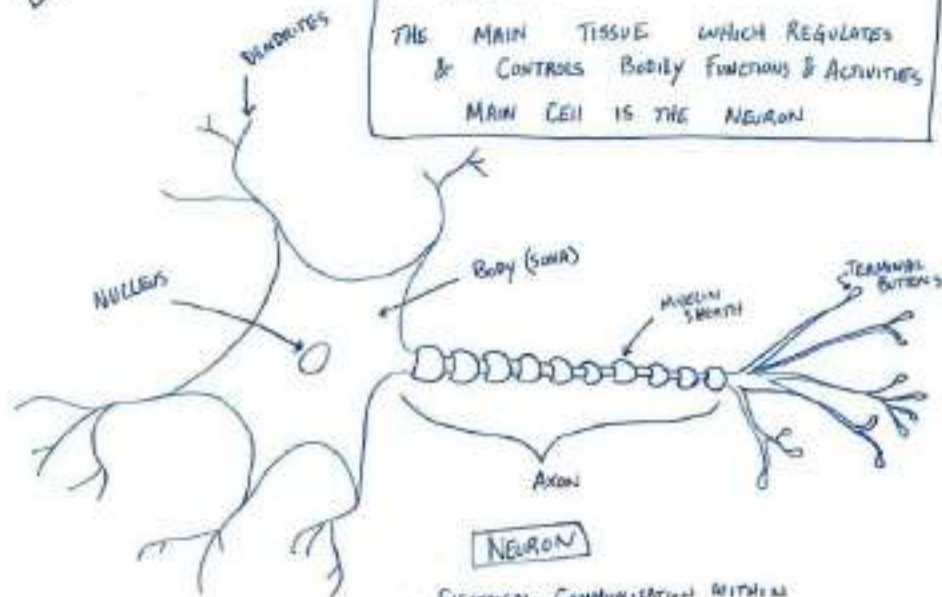 THE MAIN TISSUE WHICH REGULATES
& CONTROLS BODILY FUNCTIONS & ACTIVITIES
MAIN CELL IS THE NEURON
DENDRITES
NUCLEUS
BODY (SOMA)
MYELIN
SHEATH
TERMINAL
BUTTONS
AXON
NEURON
ELECTRICAL COMMUNICATION WITHIN